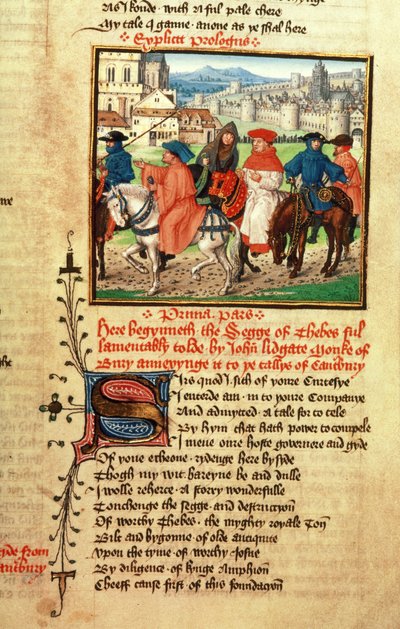 As I koude · with A ful pale chere
My tale I ganne · anone as ye shal here
Explicit Prologus
Prima · Pars
Here begynneth the Segge of Thebes ful
lamentably tolde by John Lidgate Monke of
Bury annexynge it to ye tallys of Canbury
Sirs quod I · sith of youre Curtesye
I enterde am · in to youre Companye
And admytted · A tale for to tele
By hym that hath power to compele
I mene oure hoste governere and gyde
Of youe echeone · rydenge here by syde
Thogh my wit · bareyne be and dulle
I wolle reherce · A storry wonderfulle
Towchenge the segge · and destruccon
Of worthy Thebes · the myghty royale Ton
Bilt and bygonne · of olde antiquite
Vpon the tyme · of worthy Josue
By diligence · of kynge Amphion
Cheeff cause first · of this foundacon
from
Canbury